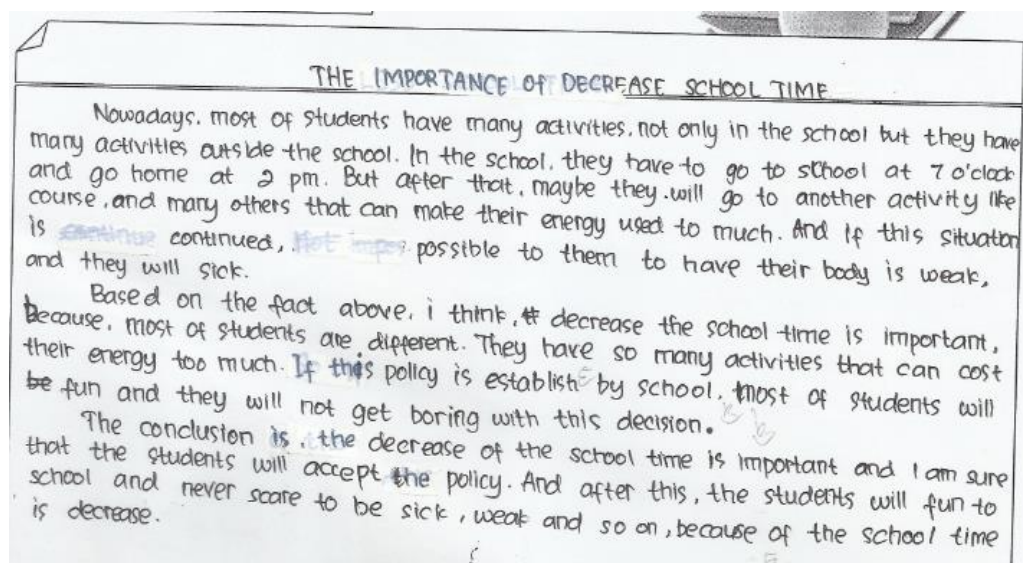 THE IMPORTANCE OF DECREASE SCHOOL TIME
Nowadays, most of students have many activities, not only in the school but they have
many activities outside the school. In the school, they have to go to school at 7 o'clock
and go home at 2 pm. But after that, maybe they will go to another activity like
course, and many others that can make their energy used to much. And if this situation
is continue continued, Not impos possible to them to have their body is weak,
and they will sick.
Based on the fact above, i think, decrease the school time is important,
because, most of students are different. They have so many activities that can cost
their energy too much. If this policy is establish by school, most of students will
be fun and they will not get boring with this decision.
The conclusion is, the decrease of the school time is important and I am sure
that the students will accept the policy. And after this, the students will fun to
school and never scare to be sick, weak and so on, because of the school time
is decrease.